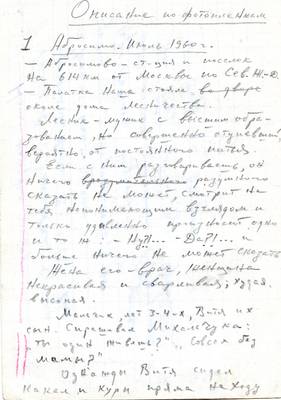 Описание по фотопленкам
1 Абросимо. Июль 1960 г.
– Абросимово – станция и поселок
на 614 км от Москвы по Сев. Ж-Д.
– Палатка наша стояла во дворе
около дома лесничества.
Лесник – мужик с высшим обра-
зованием, но совершенно отупевший
вероятно, от постоянного питья.
Если с ним разговариваешь, он
ничего вразумительного разумного
сказать не может, смотрит на
тебя непонимающим взглядом и
только удивленно произносит одно
и то ж: – Ну?!.. – Да?!... и
больше ничего не может сказать
Жена его – врач, женщина
некрасивая и сварливая, худая.
высокая.
Мальчик, лет 3-4-х, Витя их
сын. Спрашивал
"Ты один живешь?" "Совсем без
мамы?"
Однажды Витя сидел
какал и куры прямо на ходу